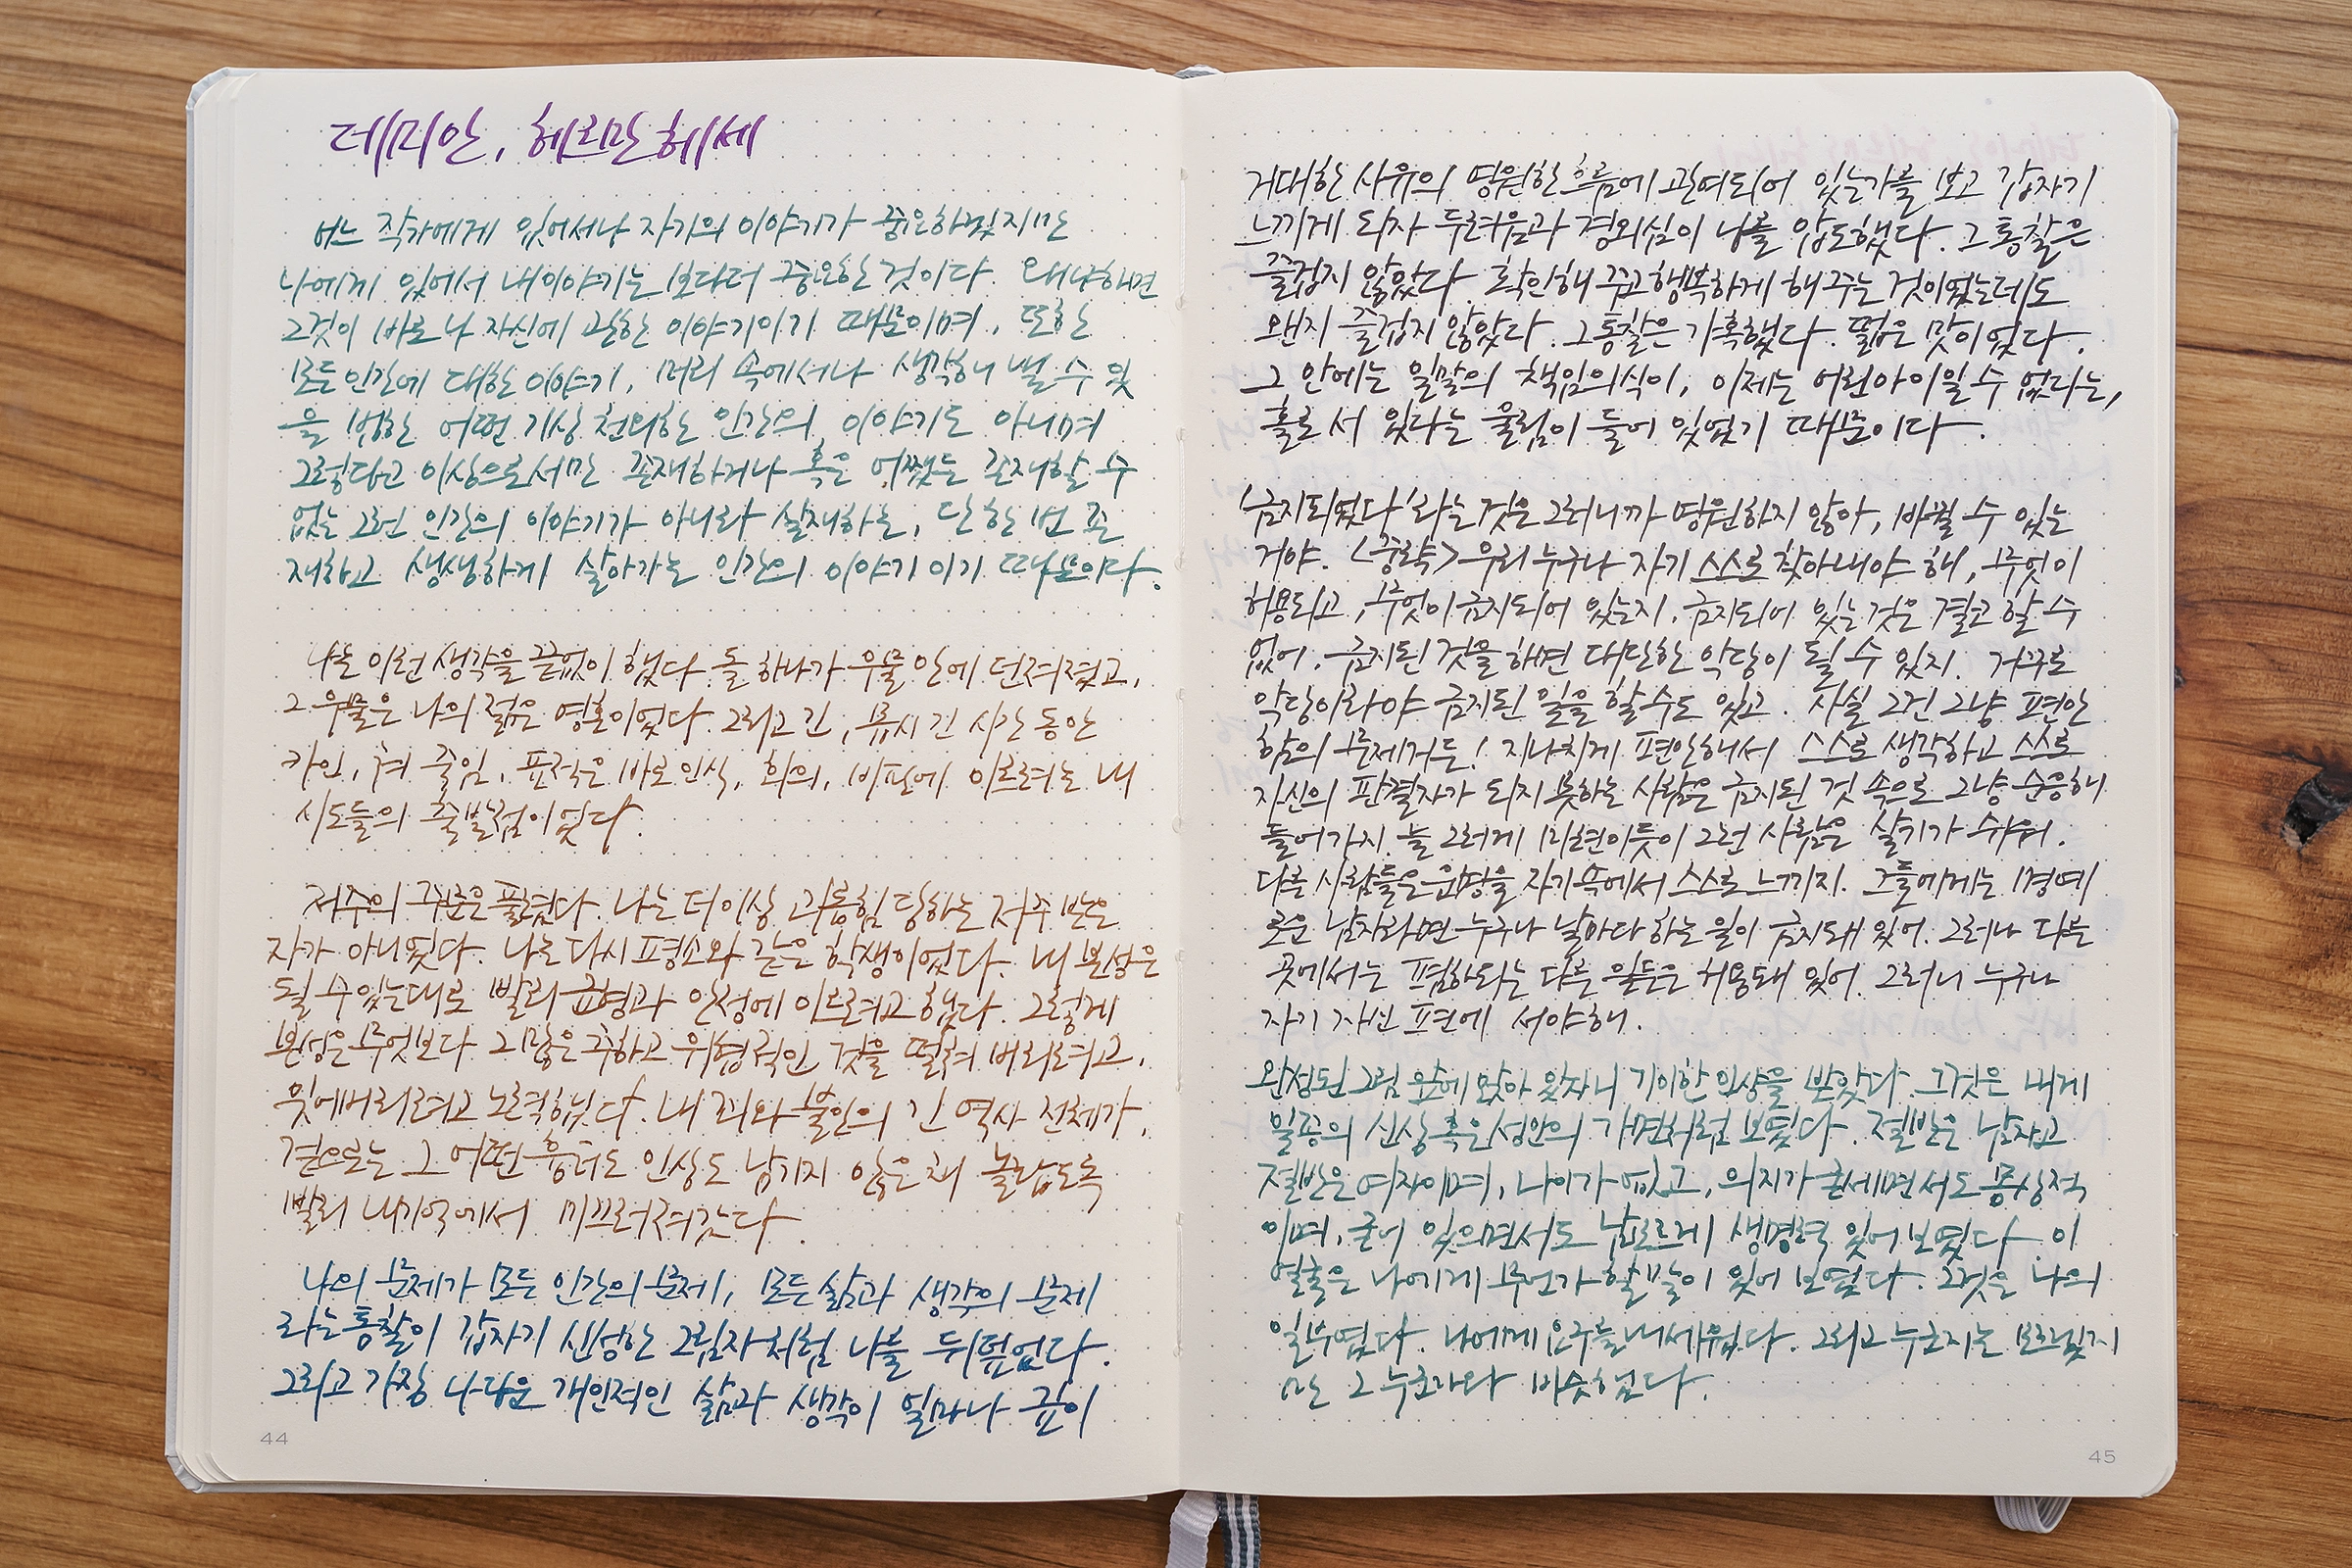 데미안, 헤르만 헤세
어느 작가에게 있어서나 자기의 이야기가 중요하겠지만
나에게 있어서 내 이야기는 보다 더 중요한 것이다. 왜냐하면
그것이 바로 나 자신에 관한 이야기이기 때문이며, 또한
모든 인간에 대한 이야기, 머리 속에서나 생각해 낼 수 있
을 법한 어떤 기상천외한 인간의 이야기도 아니며
그렇다고 이상으로서만 존재하거나 혹은 어쨌든 존재할 수
없는 그런 인간의 이야기가 아니라 실재하는, 단 한 번 존
재하고 생생하게 살아가는 인간의 이야기이기 때문이다.
나는 이런 생각을 끝없이 했다. 돌 하나가 우물 안에 던져졌고,
그 우물은 나의 젊은 영혼이었다. 그리고 긴, 몹시 긴 시간 동안
카인, 쳐 죽임, 표적은 바로 인식, 회의, 비판에 이르려는 내
시도들의 출발점이었다.
저주의 주문은 풀렸다. 나는 더 이상 괴롭힘 당하는 저주 받은
자가 아니었다. 나는 다시 평소와 같은 학생이었다. 내 본성은
될 수 있는대로 빨리 균형과 안정에 이르려고 했다. 그렇게
본성은 무엇보다 그 많은 추하고 위협적인 것을 떨쳐 버리려고,
잊어버리려고 노력했다. 내 죄와 불안의 긴 역사 전체가,
겉으로는 그 어떤 흉터도 인상도 남기지 않은 채 놀랍도록
빨리 내 기억에서 미끄러져갔다.
나의 문제가 모든 인간의 문제, 모든 삶과 생각의 문제
라는 통찰이 갑자기 신성한 그림자처럼 나를 뒤덮었다.
그리고 가장 나다운 개인적인 삶과 생각이 얼마나 깊이
44
거대한 사유의 영원한 흐름에 관여되어 있는가를 보고 갑자기
느끼게 되자 두려움과 경외심이 나를 압도했다. 그 통찰은
즐겁지 않았다. 확인해 주고 행복하게 해 주는 것이었는데도
왠지 즐겁지 않았다. 그 통찰은 가혹했다. 떫은 맛이었다.
그 안에는 일말의 책임의식이, 이제는 어린아이일 수 없다는,
홀로 서 있다는 울림이 들어 있었기 때문이다.
'금지되었다'라는 것은 그러니까 영원하지 않아, 바뀔 수 있는
거야. <중략> 우리 누구나 자기 스스로 찾아내야 해, 무엇이
허용되고, 무엇이 금지되어 있는지. 금지되어 있는 것은 결코 할 수
없어. 금지된 것을 하면 대단한 악당이 될 수 있지. 거꾸로
악당이라야 금지된 일을 할 수도 있고. 사실 그건 그냥 편안
함의 문제거든! 지나치게 편안해서 스스로 생각하고 스스로
자신의 판결자가 되지 못하는 사람은 금지된 것 속으로 그냥 순응해
들어가지. 늘 그러게 마련이듯이 그런 사람은 살기가 쉬워.
다른 사람들은 운명을 자기 속에서 스스로 느끼지. 그들에게는 명예
로운 남자라면 누구나 날마다 하는 일이 금지돼 있어. 그러나 다른
곳에서는 폄하되는 다른 일들은 허용돼 있어. 그러니 누구나
자기 자신 편에 서야 해.
완성된 그림 앞에 앉아 있자니 기이한 인상을 받았다. 그것은 내게
일종의 신상 혹은 성안의 가면처럼 보였다. 절반은 남자고
절반은 여자이며, 나이가 없고, 의지가 굳세면서도 몽상적
이며, 굳어 있으면서도 남모르게 생명력 있어 보였다. 이
얼굴은 나에게 무언가 할 말이 있어 보였다. 그것은 나의
일부였다. 나에게 요구를 내세웠다. 그리고 누군지는 모르겠지
만 그 누군가와 비슷했다.
45